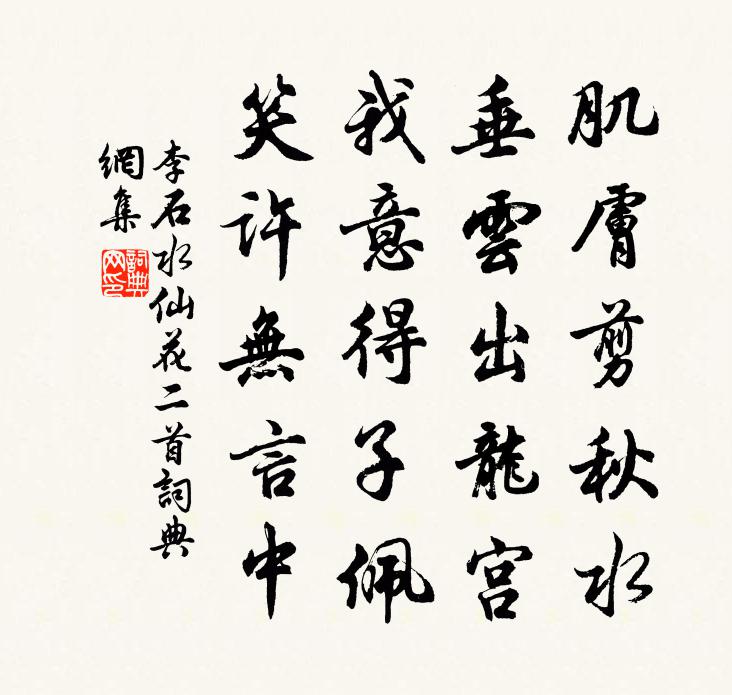 肌膚剪秋水
垂雲出龍宮
我意得子佩
笑許無言中
李石水仙花二首詞典
網集
詞典
网印